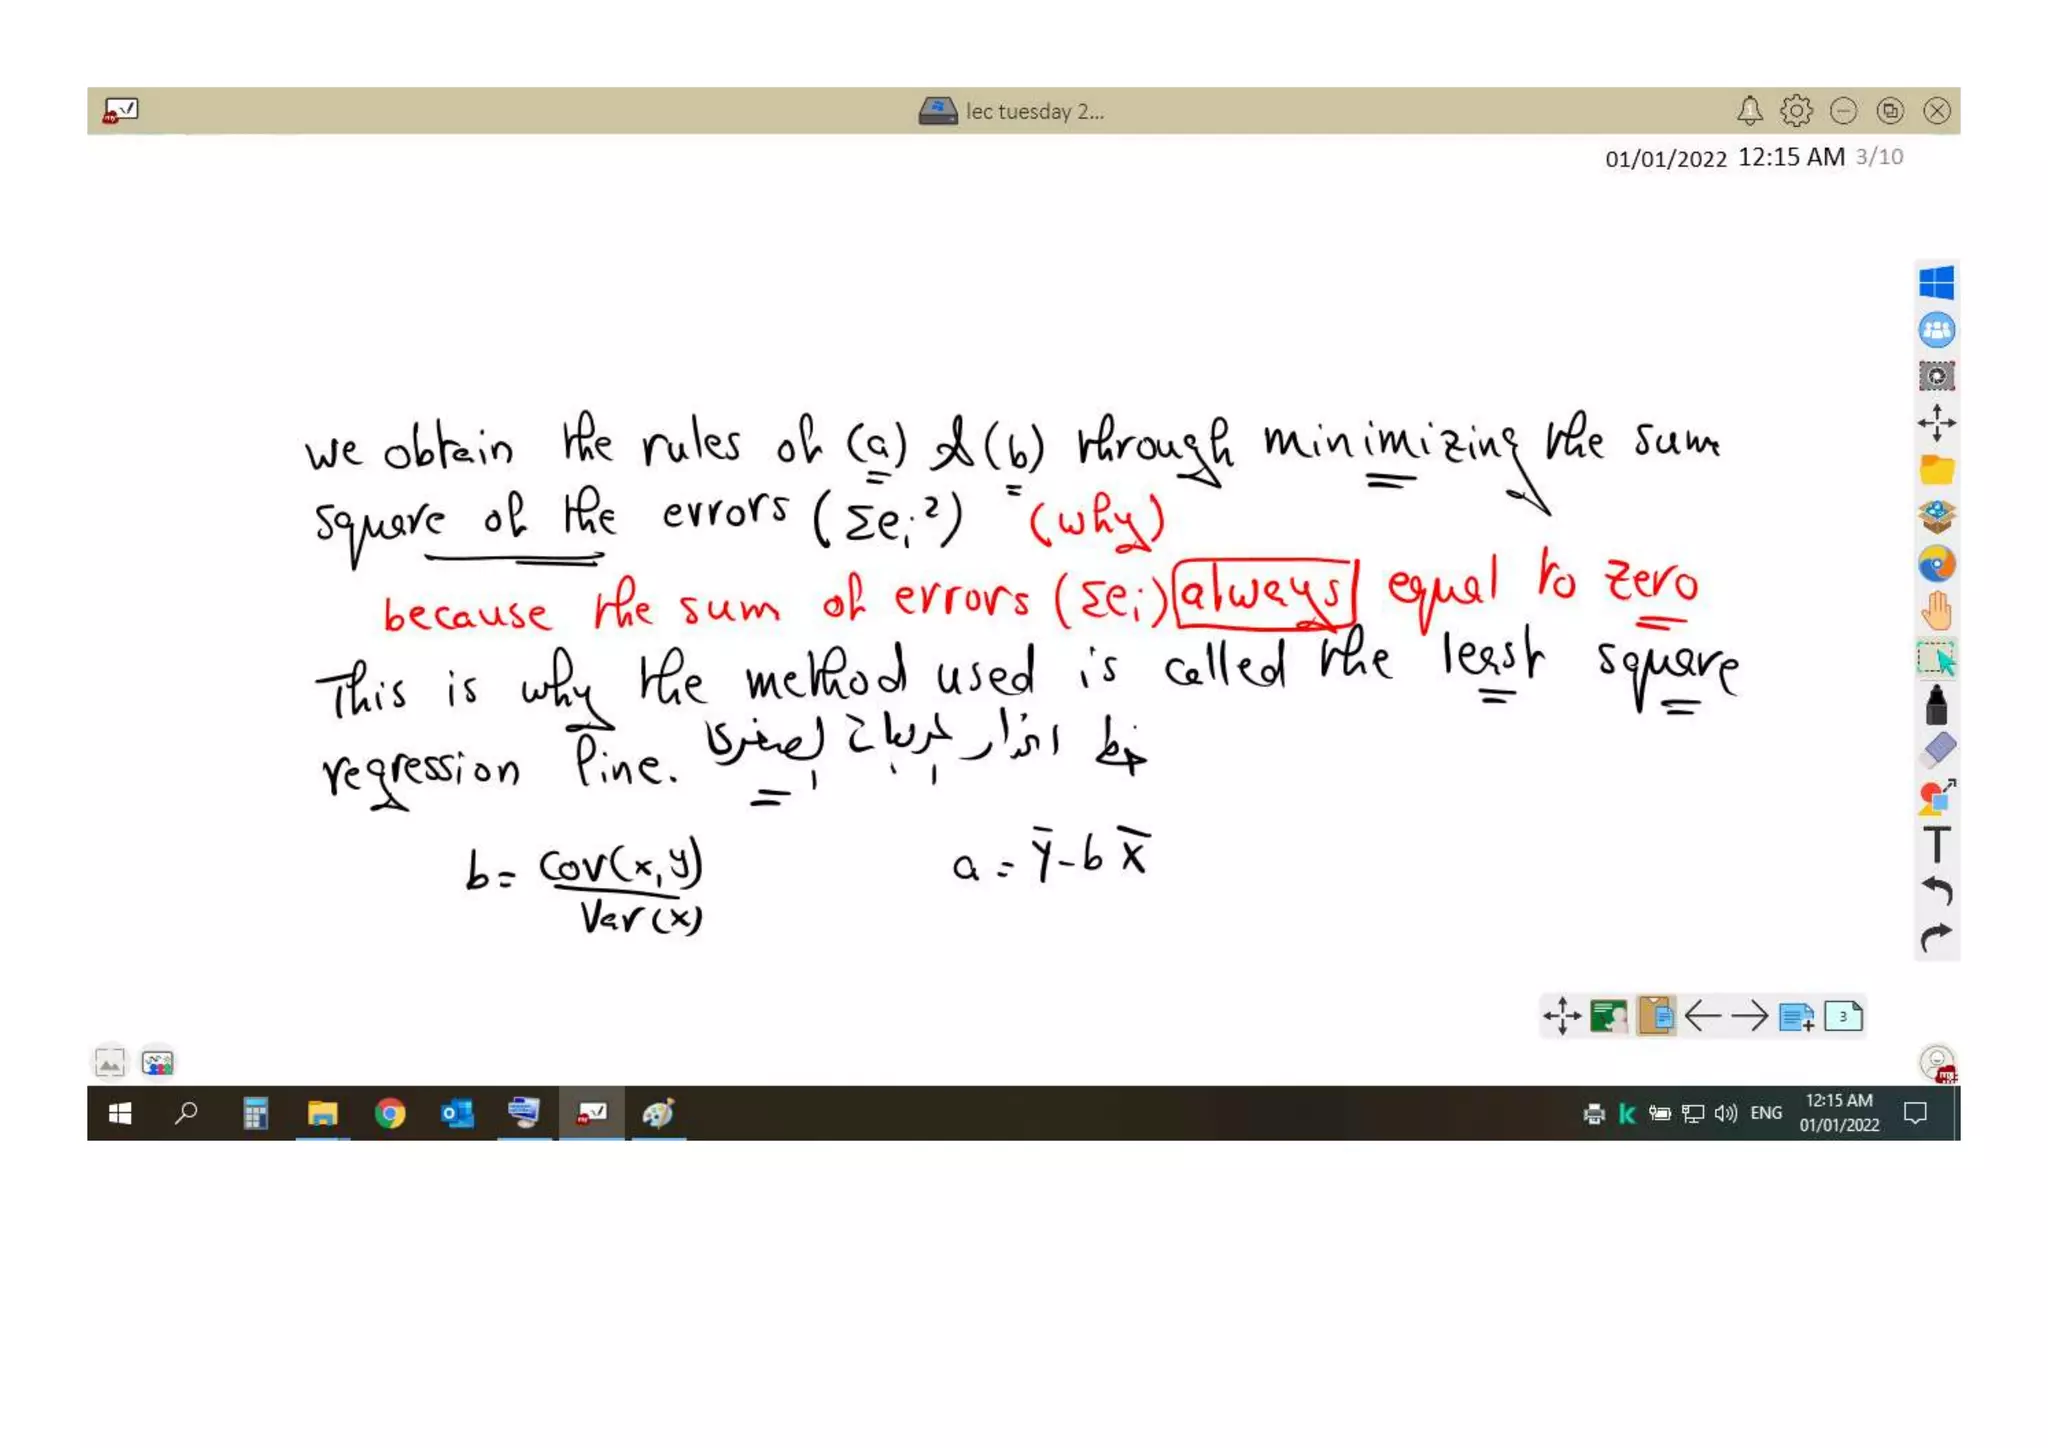 lec tuesday 2...
01/01/2022 12:15 AM 3/10
we obtain the rules of (a) & (b) through minimizing the sum
square of the errors (Σeᵢ²) (why)
because the sum of errors (Σeᵢ) always equal to zero
This is why the method used is called the least square
regression line. خط انحدار المربعات الصغرى
b = Cov(x,y) / Var(x) a = ȳ - b x̄
T
3
ENG 12:15 AM
01/01/2022